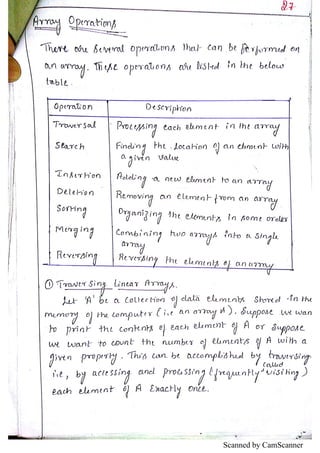 27
Array Operations
There are several operations that can be performed on
an array. These operations are listed in the below
table.
Operation Description
Traversal Processing each element in the array
Search Finding the location of an element with
a given value
Insertion Adding a new element to an array
Deletion Removing an element from an array
Sorting Organizing the elements in some order
Merging Combining two arrays into a single
array
Reversing Reversing the elements of an array
① Traversing Linear Arrays.
Let 'A' be a collection of data elements stored in the
memory of the computer (i.e an array A). Suppose we wan
to print the contents of each element of A or suppose
we want to count the number of elements of A with a
given property. This can be accomplished by traversing
i.e, by accessing and processing (frequently called visiting)
each element of A Exactly once.
Scanned by CamScanner